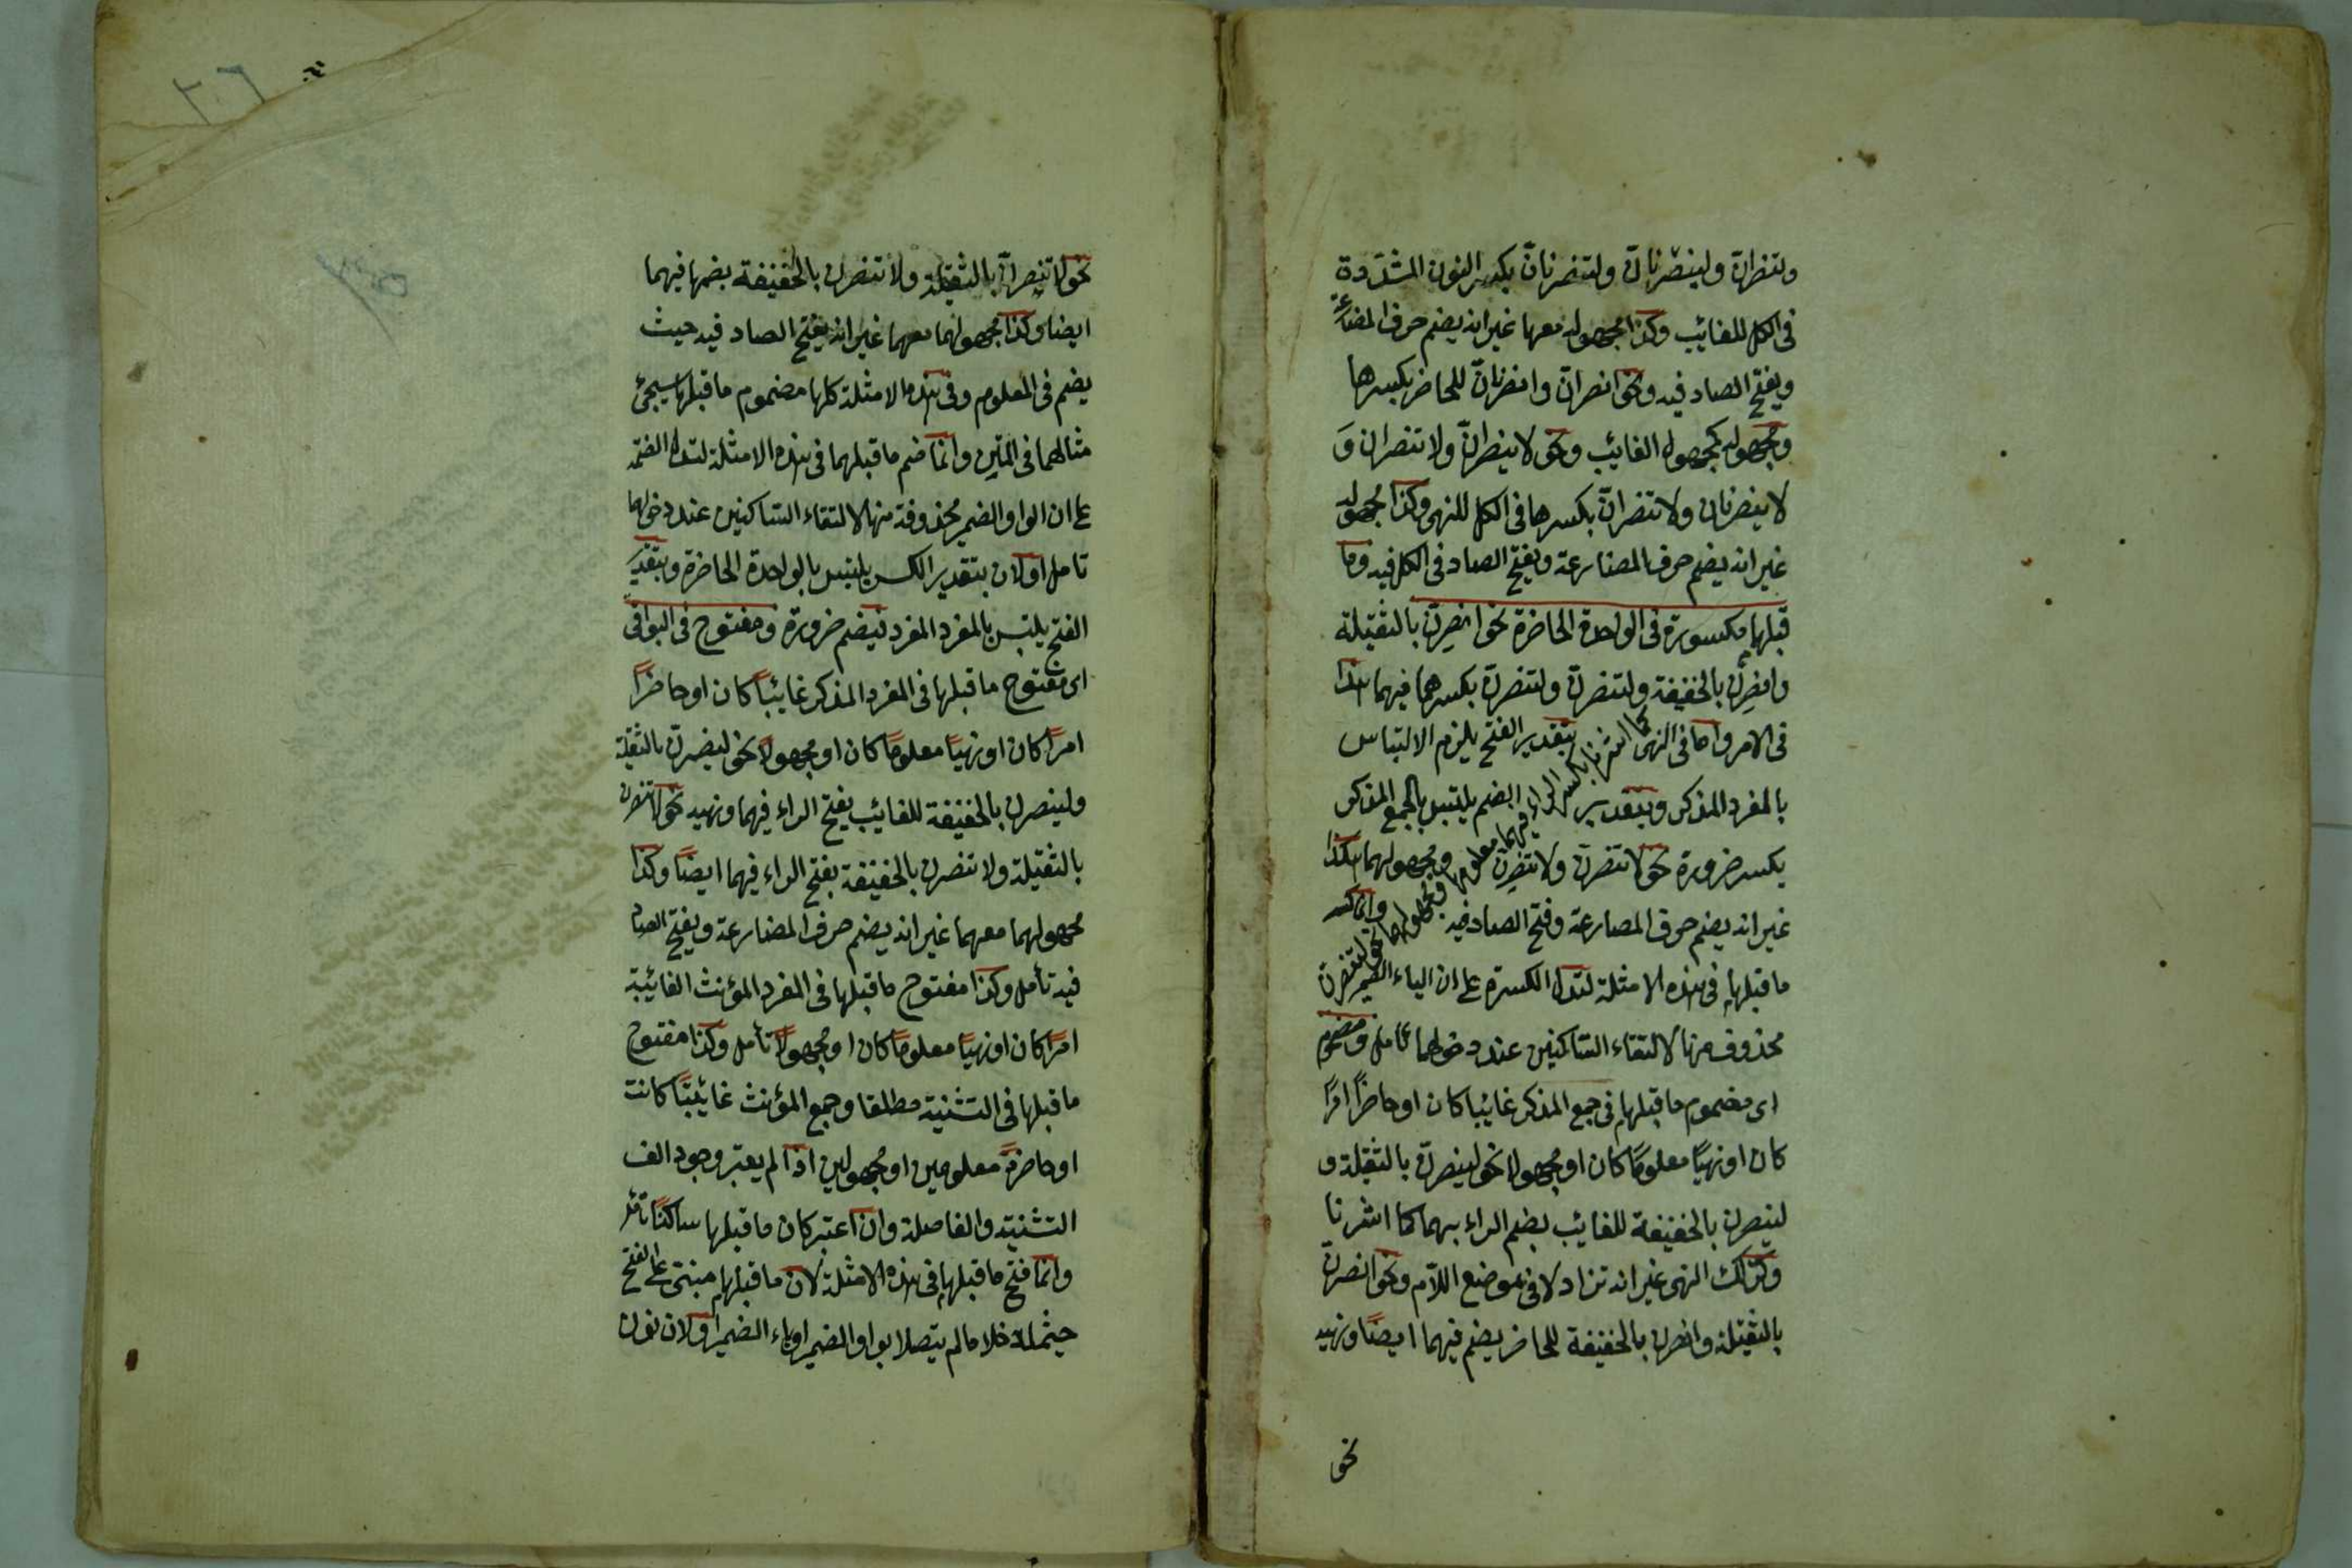 ولتنصرانّ ولينصرنانّ ولتنصرنانّ بكسر النون المشدّدة
فى الكل للغائب وكذا مجهوله معها غير انه يضم حرف المضارعة
ويفتح الصاد فيه ونحو انصرانّ وانصرنانّ للحاضر بكسرها
ومجهوله كمجهول الغائب ونحو لا ينصرانّ ولا تنصران وَ
لا ينصرنان ولا تنصرانّ بكسرها فى الكل للنهى وكذا مجهوله
غير انه يضم حرف المضارعة ويفتح الصاد فى الكل فيه وما
قبلها مكسورة فى الواحدة الحاضرة نحو انصرِنّ بالثقيلة
وانصرِنْ بالخفيفة ولتنصرنّ ولتنصرنّ بكسرهما فيهما هذا
فى الامر واما فى النهى كما اشرنا بتقدير الفتح يلزم الالتباس
بالمفرد المذكر وبتقدير الضم يلتبس بالجمع المذكر
يكسر ضرورة نحو لا تنصرنّ ولا تنصرِن ومجهولهما هكذا
غير انه يضم حرف المضارعة وفتح الصاد فيه وانما كسر
بكسر الراء فيهما معلوما
ما قبلها فى هذه الامثلة لتدل الكسرة على ان الياء الضمير
محذوف منها لالتقاء الساكنين عند دخولهما تأمل ومضموم
اى مضموم ما قبلها فى جمع المذكر غائبا كان او حاضرًا امرًا
كان او نهيًا معلومًا كان او مجهولا نحو لينصرنّ بالثقيلة و
لينصرن بالخفيفة للغائب بضم الراء بهما كما اشرنا
وكذلك النهى غير انه تزاد لا فى موضع اللام ونحو انصرنّ
بالثقيلة وانصرن بالخفيفة للحاضر يضم فيهما ايضًا ونهيه
نحو
نحو لا تنصرنّ بالثقيلة ولا تنصرن بالخفيفة بضمها فيهما
ايضا وكذا مجهولهما معهما غير انه يفتح الصاد فيه حيث
يضم فى المعلوم وفى هذه الامثلة كلها مضموم ما قبلها سيجئ
مثالهما فى المتن وانما ضم ما قبلهما فى هذه الامثلة لتدل الضمة
على ان الواو الضمير محذوفة منها لالتقاء الساكنين عند دخولهما
تامل اولان بتقدير الكسر يلتبس بالواحدة الحاضرة وبتقدير
الفتح يلتبس بالمفرد المفرد فيضم ضرورة ومفتوح فى البواقى
اى مفتوح ما قبلها فى المفرد المذكر غائبًا كان او حاضرًا
امرًا كان او نهيًا معلومًا كان او مجهولًا نحو لينصرنّ بالثقيلة
ولينصرن بالخفيفة للغائب بفتح الراء فيهما ونهيه نحو لا تنصرن
بالثقيلة ولا تنصرن بالخفيفة بفتح الراء فيهما ايضًا وكذا
مجهولهما معهما غير انه يضم حرف المضارعة ويفتح الصاد
فيه تأمل وكذا مفتوح ما قبلها فى المفرد المؤنث الغائبة
امرًا كان او نهيًا معلومًا كان او مجهولًا تأمل وكذا مفتوح
ما قبلها فى التثنية مطلقا وجمع المؤنث غائبتًا كانت
او حاضرةً معلومين او مجهولين اذا لم يعتبر وجود الف
التثنية والفاصلة وان اعتبر كان ما قبلها ساكنًا
وانما فتح ما قبلها فى هذه الامثلة لان ما قبلها مبنى على الفتح
حيثما دخلا ما لم يتصلا بواو الضمير او ياء الضمير اولان نون
٢٦